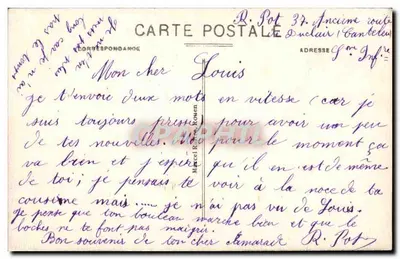 R. Pot 37 Ancienne route
de Duclair Canteleu
Sne Infre
CARTE POSTALE
CORRESPONDANCE
ADRESSE
je t'en
mets pas plus
long car je n'ai
pas le temps
Mon cher Louis
je t'envoie deux mots en vitesse car je
suis toujours pressé pour avoir un peu
de tes nouvelles. Moi pour le moment ça
va bien et j'espère qu'il en est de même
de toi; je pensais te voir à la noce de ta
cousine mais..... je n'ai pas vu de Louis.
je pense que ton bouleau marche bien et que les
boches ne te font pas maigrir.
Bon souvenir de ton cher camarade R. Pot